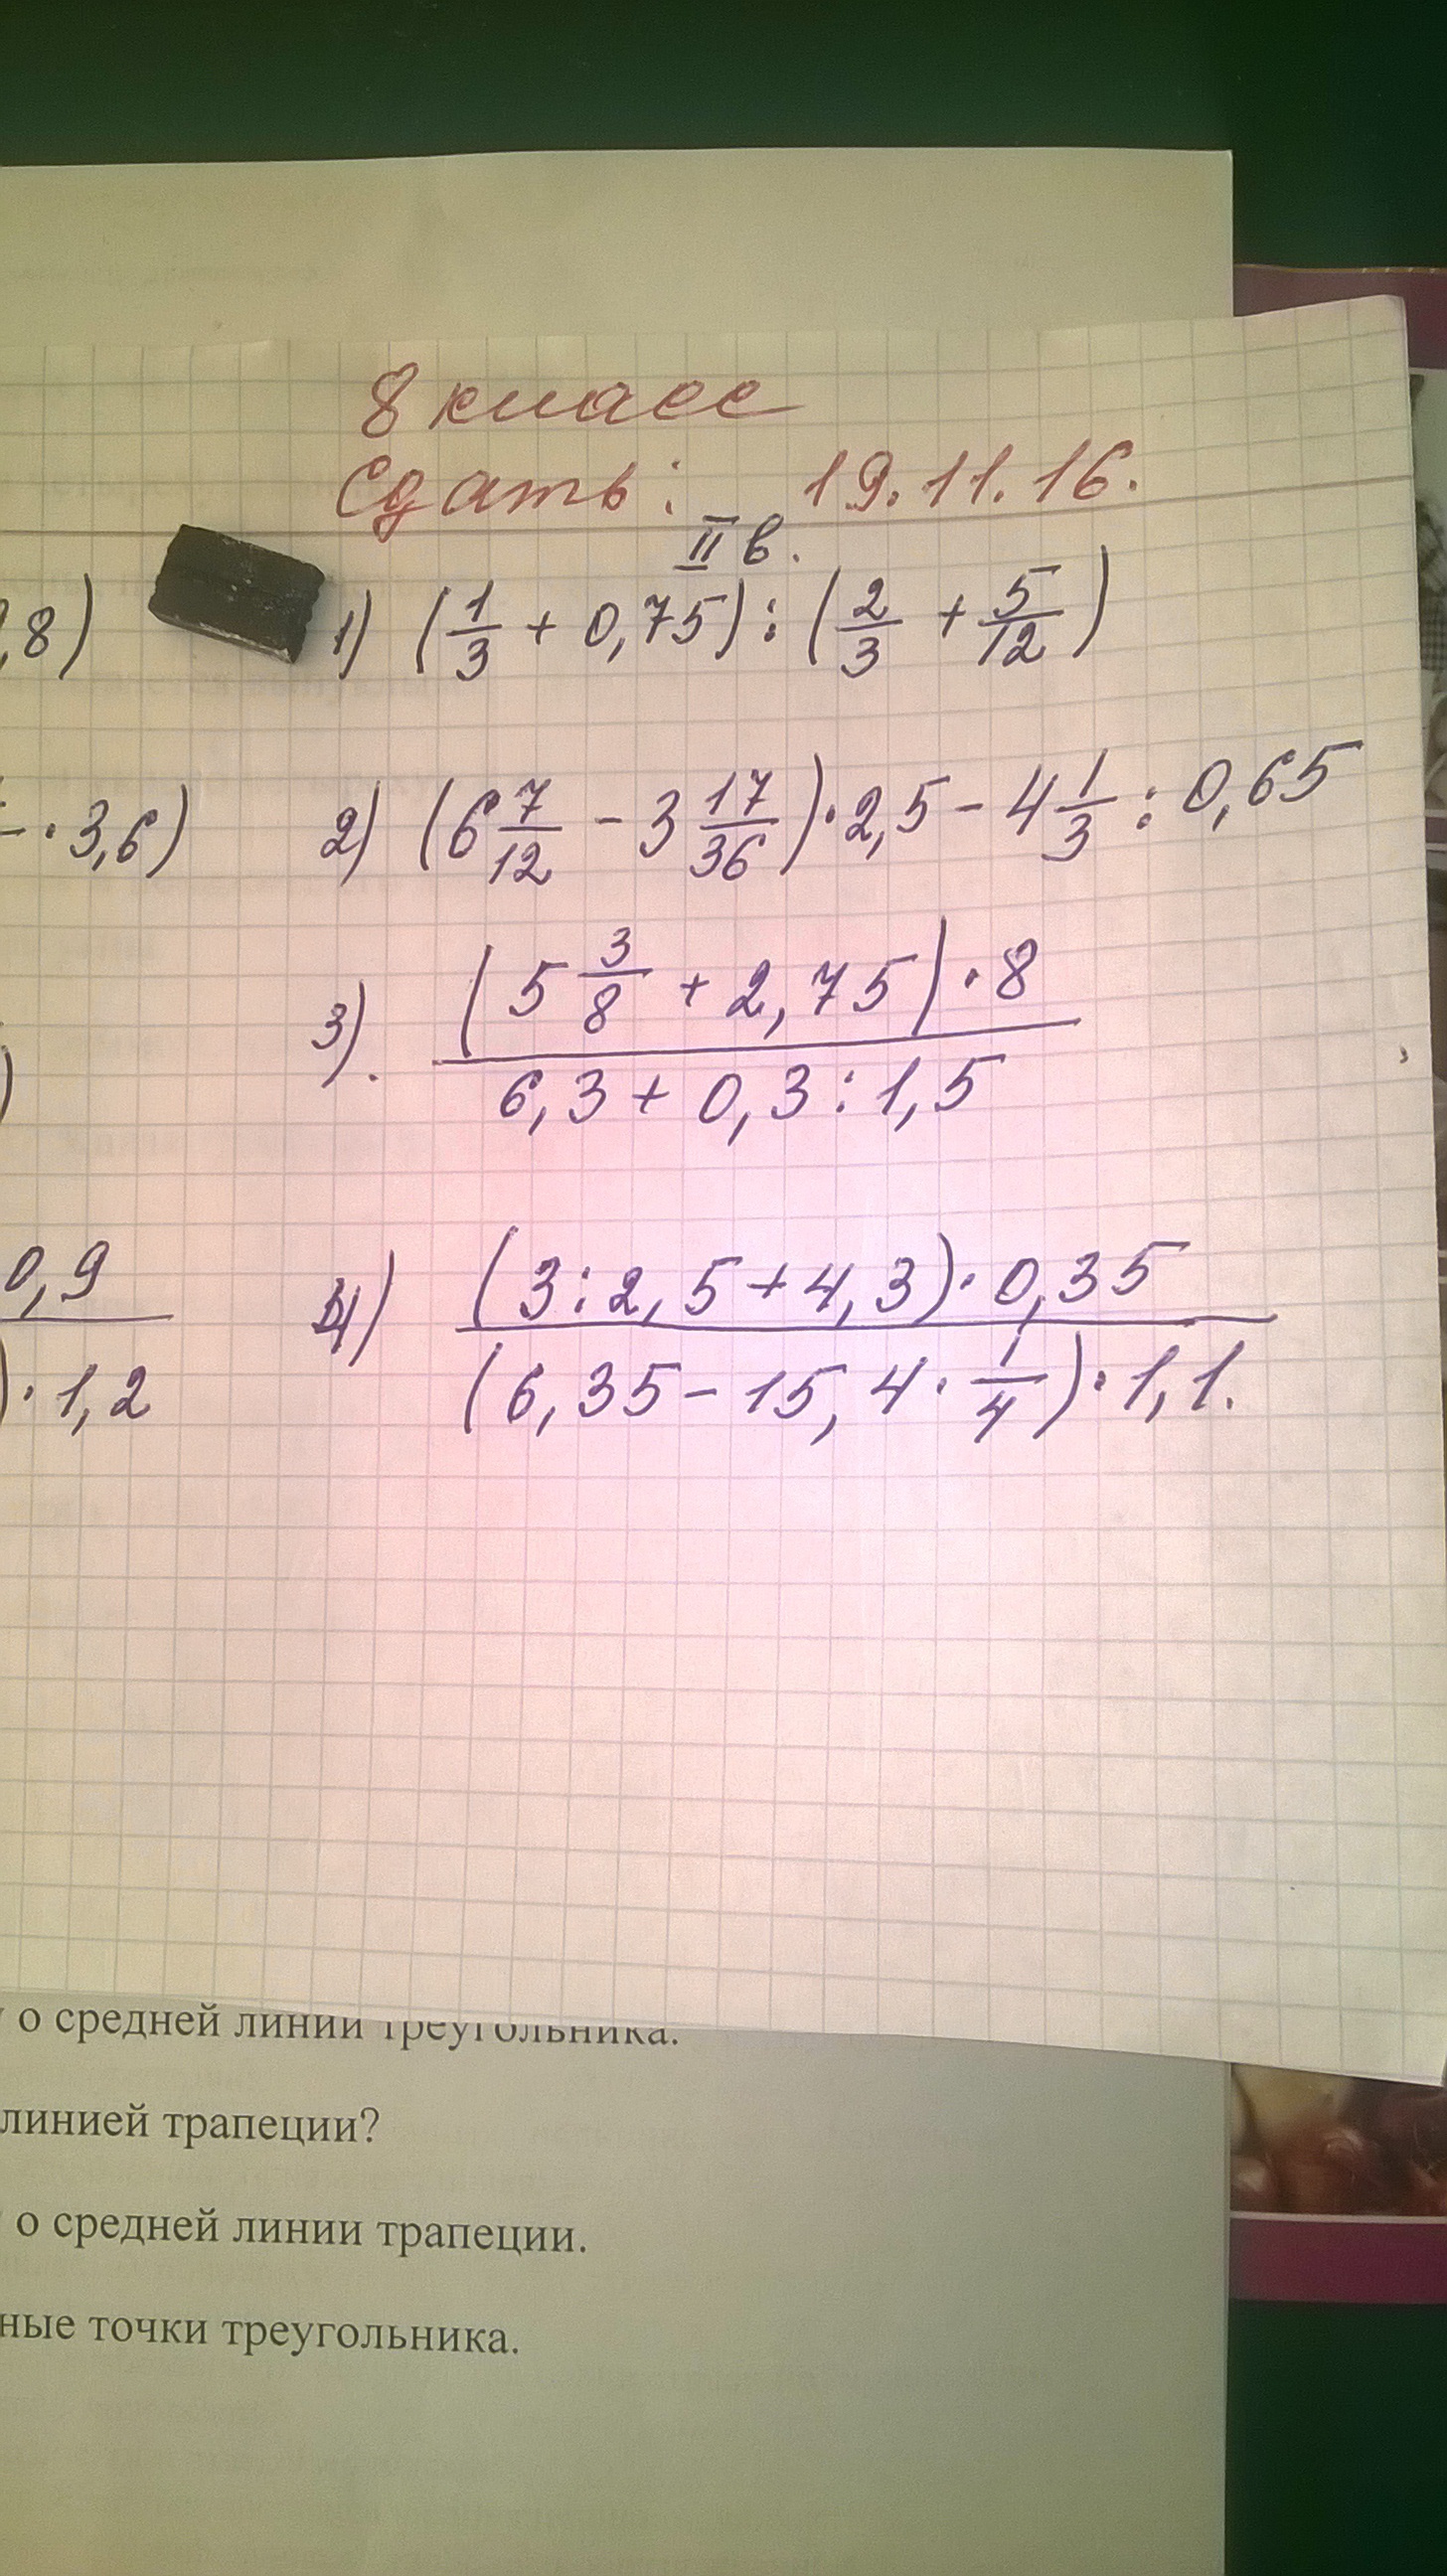 8 класс
Сдать: 19.11.16.
II в.
,8)
1) (1/3 + 0,75) : (2/3 + 5/12)
· 3,6)
2) (6 7/12 - 3 17/36) · 2,5 - 4 1/3 : 0,65
3). (5 3/8 + 2,75) · 8
6,3 + 0,3 : 1,5
)
0,9
) · 1,2
4) (3 : 2,5 + 4,3) · 0,35
(6,35 - 15,4 · 1/4) · 1,1.
о средней линии треугольника.
линией трапеции?
о средней линии трапеции.
ные точки треугольника.